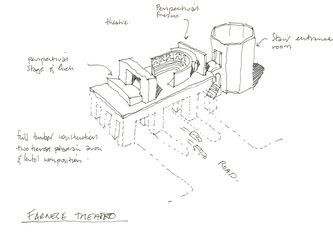 theatre.
Perspectival
Stair entrance
room
perspectival
Stage of
Full timber construction
two tiered
& lintol composition
ROAD.
FARNESE THEATRO